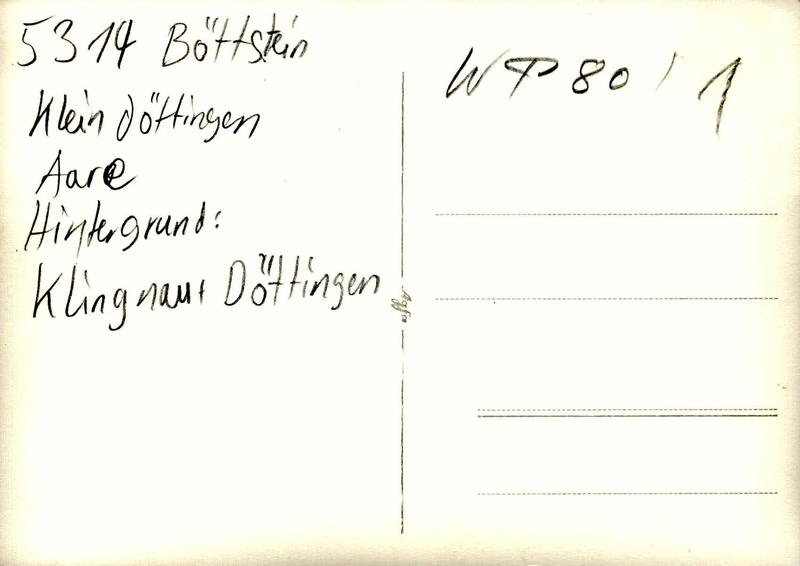 5314 Böttstein
Klein döttingen
Aare
Hintergrund:
Klingnau, Döttingen
WP 80 / 1
Agfa